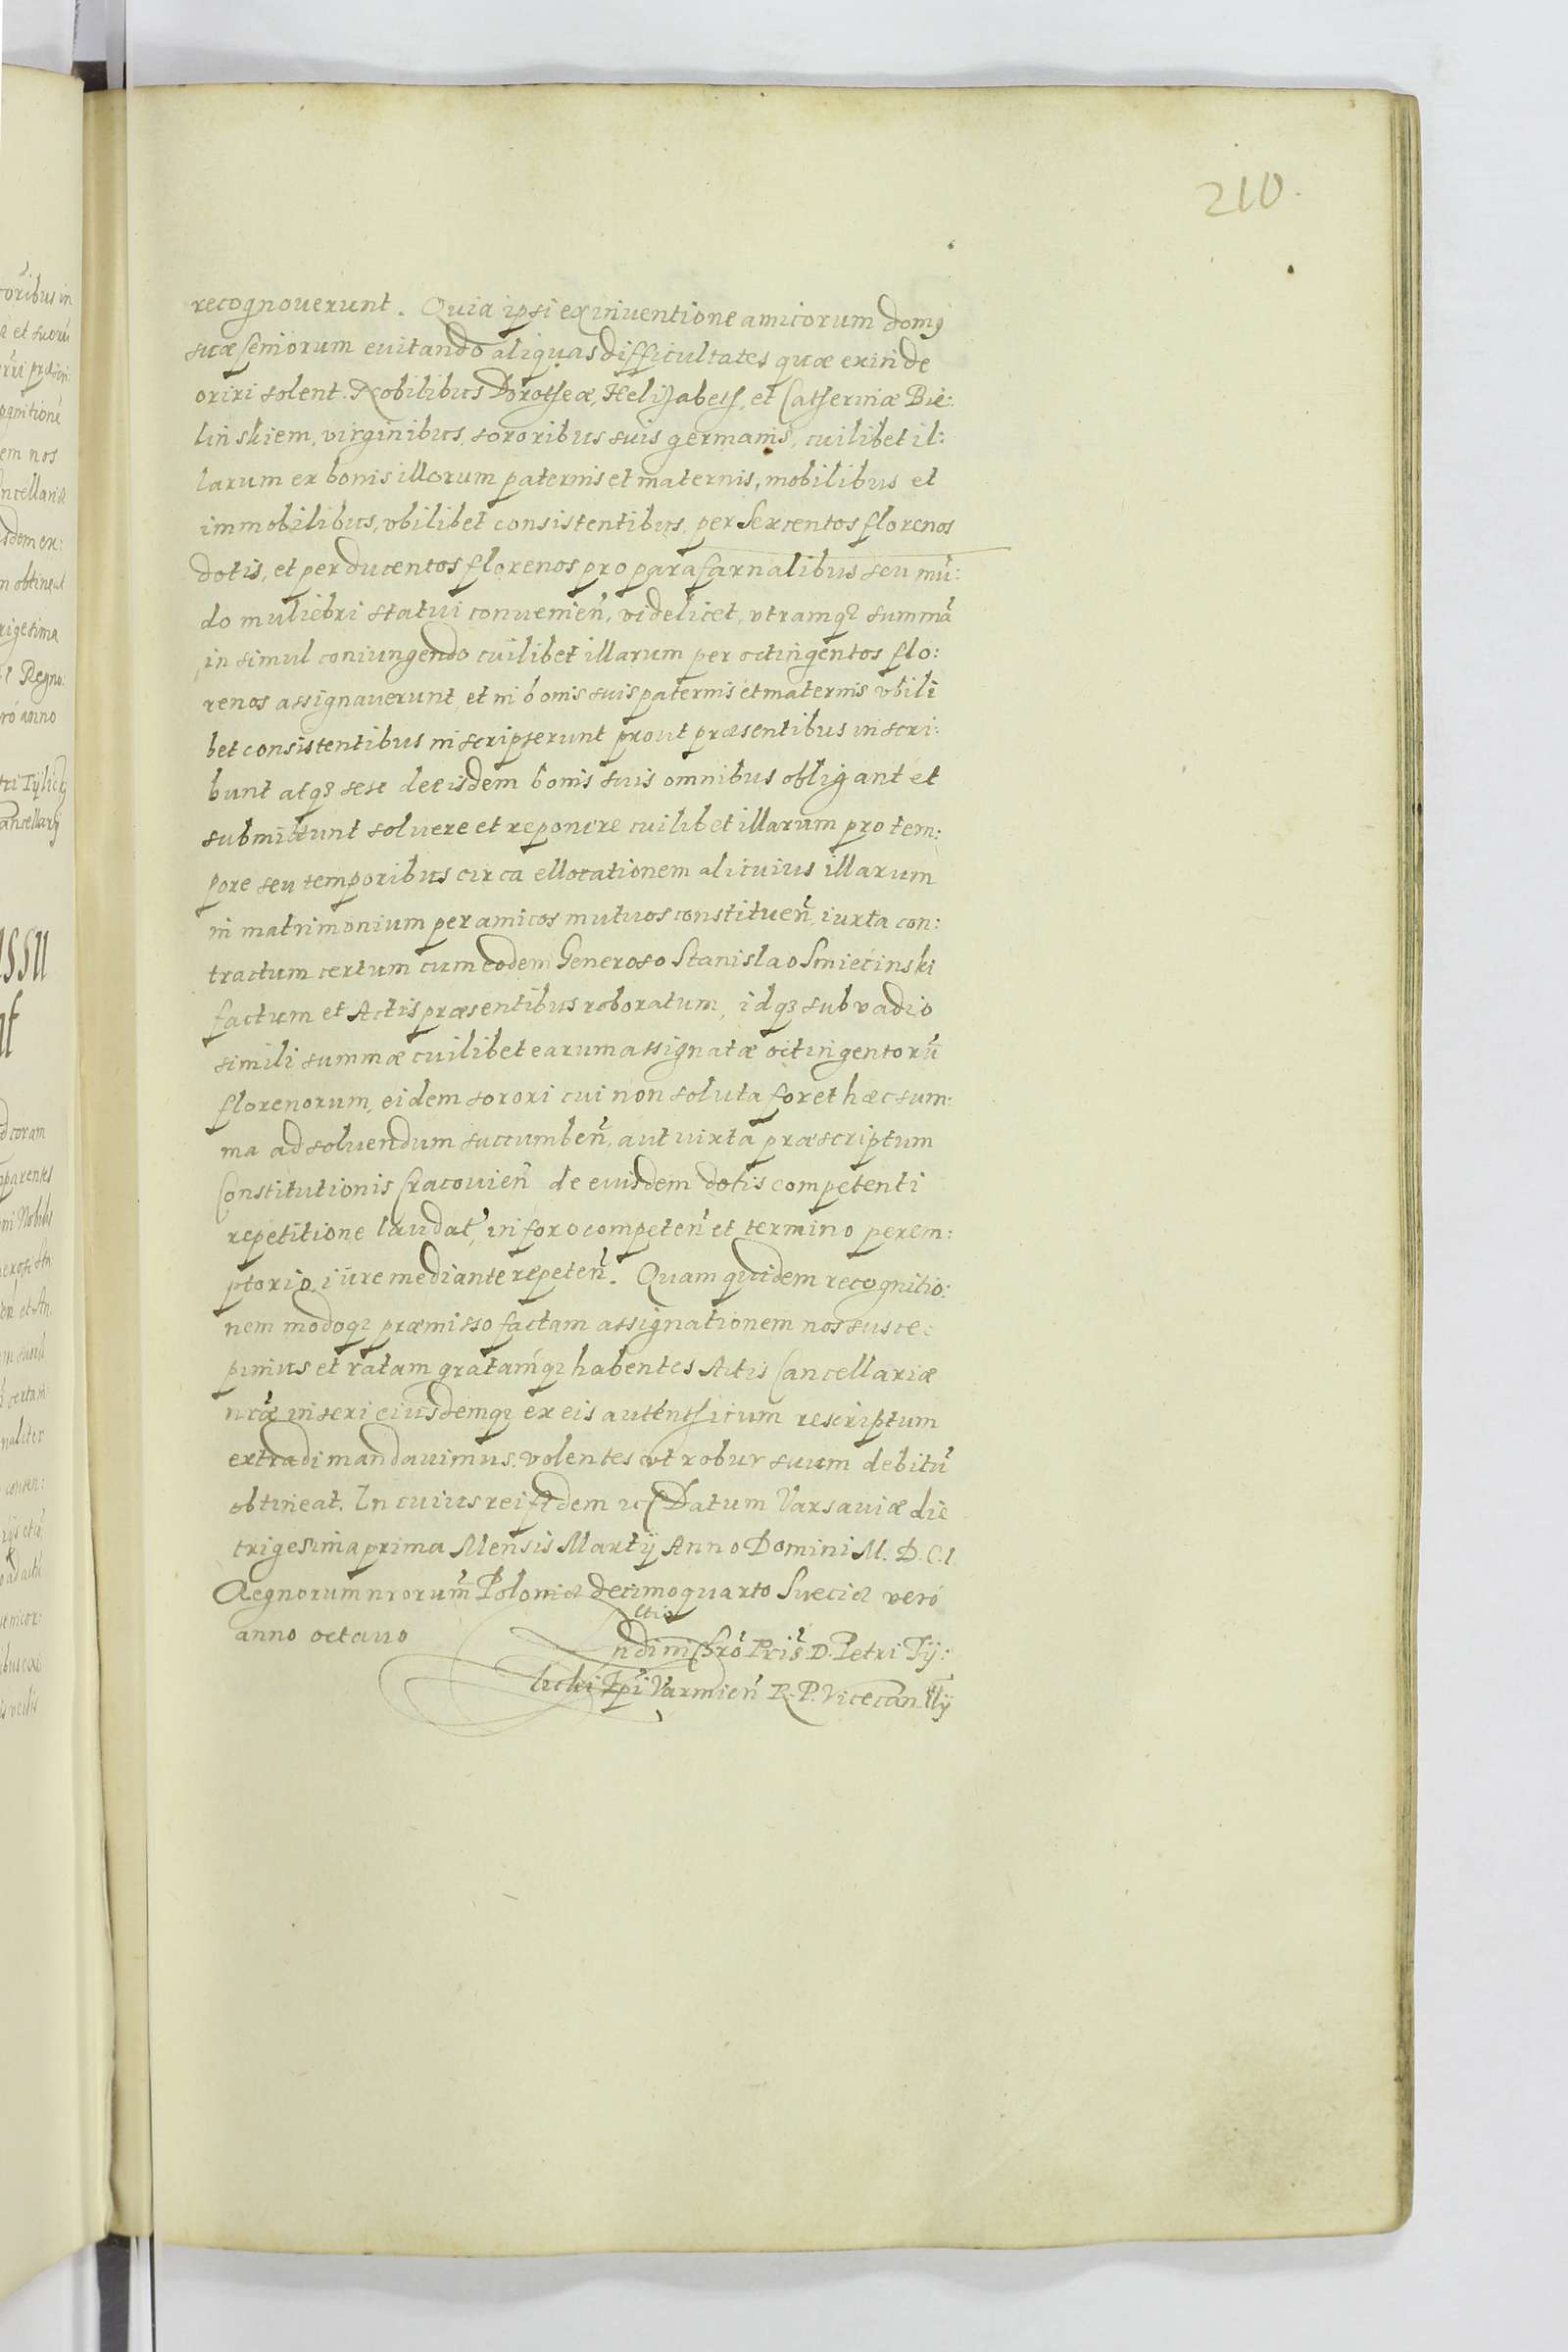 210.
recognouerunt. Quia ipsi ex inuentione amicorum domus
suæ seniorum euitando aliquas difficultates quæ exinde
oriri solent. Nobilibus Dorotheæ, Helizabeth, et Catherinæ Bie:
linskiem, virginibus, sororibus suis germanis, cuilibet il:
larum ex bonis illorum paternis et maternis, mobilibus et
immobilibus, vbilibet consistentibus, per Sexcentos florenos
dotis, et per ducentos florenos pro parafarnalibus seu mũ:
do muliebri statui conuenieñ, videlicet, vtramq3 summã
in simul coniungendo cuilibet illarum per octingentos flo:
renos assignauerunt, et in bonis suis paternis et maternis vbili
bet consistentibus inscripserunt prout præsentibus inscri:
bunt atq3 sese de eisdem bonis suis omnibus obligant et
submittunt soluere et reponere cuilibet illarum pro tem:
pore seu temporibus circa ellocationem alicuius illarum
in matrimonium per amicos mutuos constitueñ, iuxta con:
tractum certum cum eodem Generoso Stanislao Smiecinski
factum et Actis præsentibus roboratum, idq3 sub vadio
simili summæ cuilibet earum assignatæ octingentorũ
florenorum, eidem sorori cui non soluta foret hæc sum:
ma ad soluendum succumbeñ, aut iuxta præscriptum
Constitutionis Cracouieñ de eiusdem dotis competenti
repetitione laudat', in foro competeñ et termino perem:
ptorio, iure mediante repeteñ. Quam quidem recognitio:
nem modoq3 præmisso factam assignationem nos susce:
pimus et ratam gratamq3 habentes Actis Cancellariæ
nr̃æ inseri eiusdemq3 ex eis autenthicum rescriptum
extradi mandauimus. volentes vt robur suum debitũ
obtineat. In cuius rei fidem &c Datum Varsauiæ die
trigesima prima Mensis Martij Anno Domini M. D. C. I.
Regnorum nrorum̃ Poloniæ decimoquarto Sueciæ verò
anno octauo
ndi in Chrõ Pris̃ D. Petri Tij:
licki Epĩ Varmieñ R. P. Vicecan llij